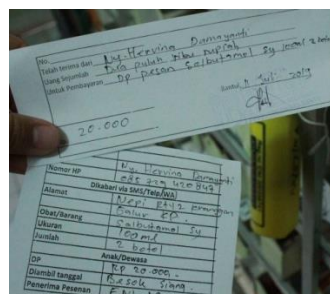 No.
Telah terima dari Ny. Hervina Damayanti
Uang Sejumlah Dua puluh ribu rupiah
Untuk Pembayaran DP pesan Salbutamol Sy 100ml 2 botol
Bantul, Juli 2019
20.000
Ny. Hervina Damayanti
Nomor HP
Dikabari via SMS/Telp/WA
Alamat
Obat/Barang Salbutamol Sy
Ukuran 100ml
Jumlah 2 botol
Anak/Dewasa
DP Rp 20.000,-
Diambil tanggal Besok Siang.
Penerima Pesenan